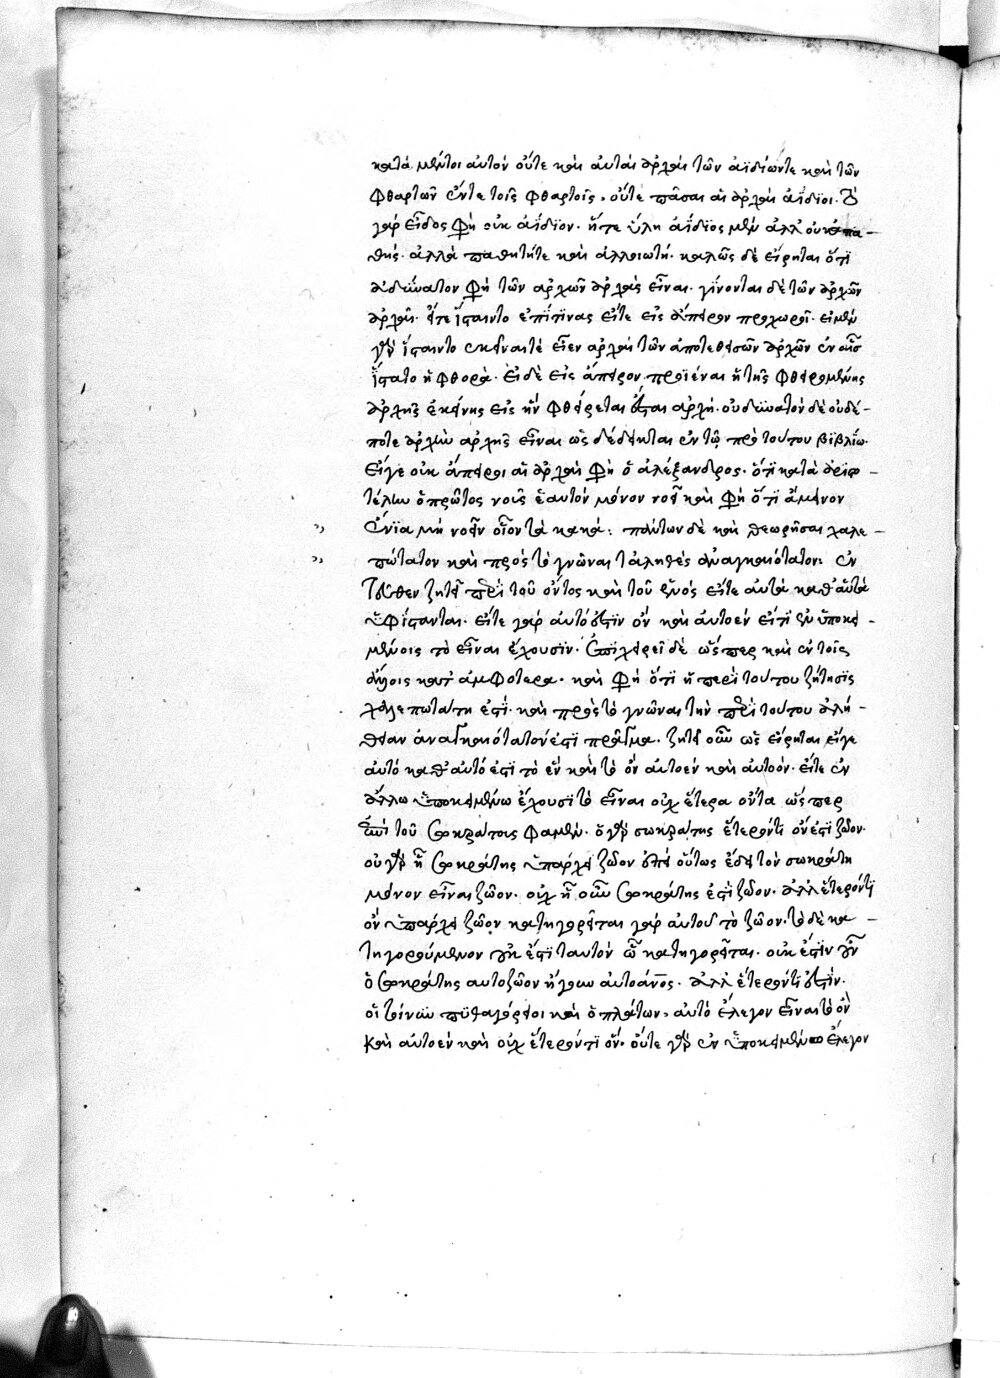 κατὰ μέντοι αὐτὸν οὔτε καὶ αὐταὶ ἀρχαὶ τῶν ἀϊδίων τε καὶ τῶν
φθαρτῶν ἔν τε τοῖς φθαρτοῖς, οὔτε πᾶσαι αἱ ἀρχαὶ ἀΐδιοι. τὸ
γὰρ εἶδος φησὶ οὐκ ἀΐδιον. ἥ τε ὕλη ἀΐδιος μὲν ἀλλ' οὐκ ἀπα-
θής. ἀλλὰ παθητή τε καὶ ἀλλοιωτή. καλῶς δὲ εἴρηται ὅτι
ἀδύνατον φησὶ τῶν ἀρχῶν ἀρχὰς εἶναι. γίνονται δὲ τῶν ἀρχῶν
ἀρχαὶ. εἴτε ἵσταιντο ἐπί τινας εἴτε εἰς ἄπειρον προχωροῖ. εἰ μὲν
γὰρ ἵσταιντο ἐκεῖναί τε εἶεν ἀρχαὶ τῶν ἀποτεθεισῶν ἀρχῶν ἐν αἷς
ἵστατο ἡ φθορά. εἰ δὲ εἰς ἄπειρον προϊέναι ἡ τῆς φθειρομένης
ἀρχῆς ἐκείνης εἰς ἣν φθείρεται ἔσται ἀρχή. οὐ δυνατὸν δὲ οὐδέ-
ποτε ἀρχὴν ἀρχῆς εἶναι ὡς δέδεικται ἐν τῷ πρὸ τούτου βιβλίῳ.
εἴγε οὐκ ἄπειροι αἱ ἀρχαὶ φησὶ ὁ ἀλέξανδρος. ὅτι κατὰ ἀριστο-
τέλην ὁ πρῶτος νοῦς ἑαυτὸν μόνον νοεῖ καὶ φησὶ ὅτι ἄμεινον
ἔνια μὴ νοεῖν οἷον τὰ κακά: πάντων δὲ καὶ θεωρῆσαι χαλε-
πώτατον καὶ πρὸς τὸ γνῶναι τἀληθὲς ἀναγκαιότατον: ἐν
τεῦθεν ζητεῖ περὶ τοῦ ὄντος καὶ τοῦ ἑνός εἴτε αὐτὰ καθ' αὑτὰ
ὑφίστανται. εἴτε γὰρ αὐτό ἐστιν ὂν καὶ αὐτοέν εἴ τι ἐν ὑποκει-
μένοις τὸ εἶναι ἔχουσιν. ἐπιχειρεῖ δὲ ὥσπερ καὶ ἐν τοῖς
ἄλλοις κατ' ἀμφότερα. καὶ φησὶ ὅτι ἡ περὶ τούτου ζήτησις
χαλεπωτάτη ἐστί. καὶ πρὸς τὸ γνῶναι τὴν περὶ τούτου ἀλή-
θειαν ἀναγκαιότατόν ἐστι πρᾶγμα. ζητεῖ οὖν ὡς εἴρηται εἴγε
αὐτὸ καθ' αὑτό ἐστι τὸ ἓν καὶ τὸ ὂν αὐτοὲν καὶ αὐτοόν. εἴτε ἐν
ἄλλῳ ὑποκειμένῳ ἔχουσι τὸ εἶναι οὐχ ἕτερα ὄντα ὥσπερ
ἐπὶ τοῦ σωκράτους φαμέν. ὁ γὰρ σωκράτης ἕτερόν τι ὄν ἐστι ζῶον.
οὐ γὰρ ᾗ σωκράτης ὑπάρχει ζῶον ἐπεὶ οὕτως ἔδει τὸν σωκράτη
μόνον εἶναι ζῶον. οὐχ ᾗ οὖν σωκράτης ἐστὶ ζῶον. ἀλλ' ἕτερόν τι
ὂν ὑπάρχει ζῶον κατηγορεῖται γὰρ αὐτοῦ τὸ ζῶον. τὸ δὲ κα-
τηγορούμενον οὐκ ἔστι ταυτὸν ᾧ κατηγορεῖται. οὐκ ἔστιν οὖν
ὁ σωκράτης αὐτοζῶον ἤγουν αὐτοάνος. ἀλλ' ἕτερόν τι ἐστίν.
οἱ τοίνυν πυθαγόρειοι καὶ ὁ πλάτων, αὐτὸ ἔλεγον εἶναι τὸ ὂν
καὶ αὐτοὲν καὶ οὐχ ἕτερόν τι ὄν. οὔτε γὰρ ἐν ὑποκειμένῳ ἔλεγον